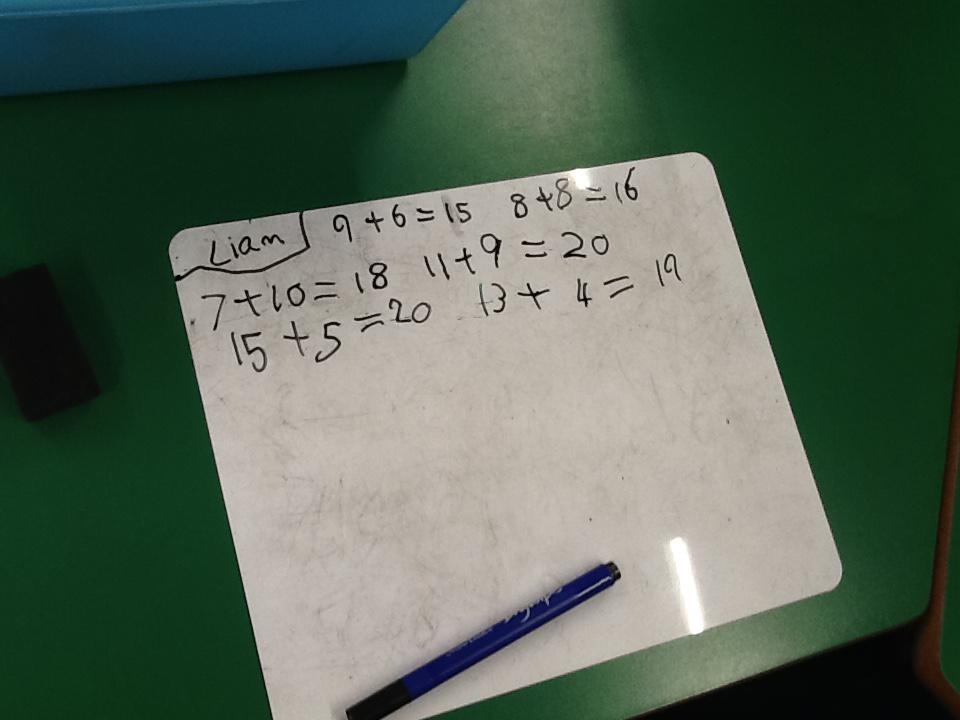 Liam 9+6=15 8+8=16
7+10=18 11+9=20
15+5=20 13+4=19